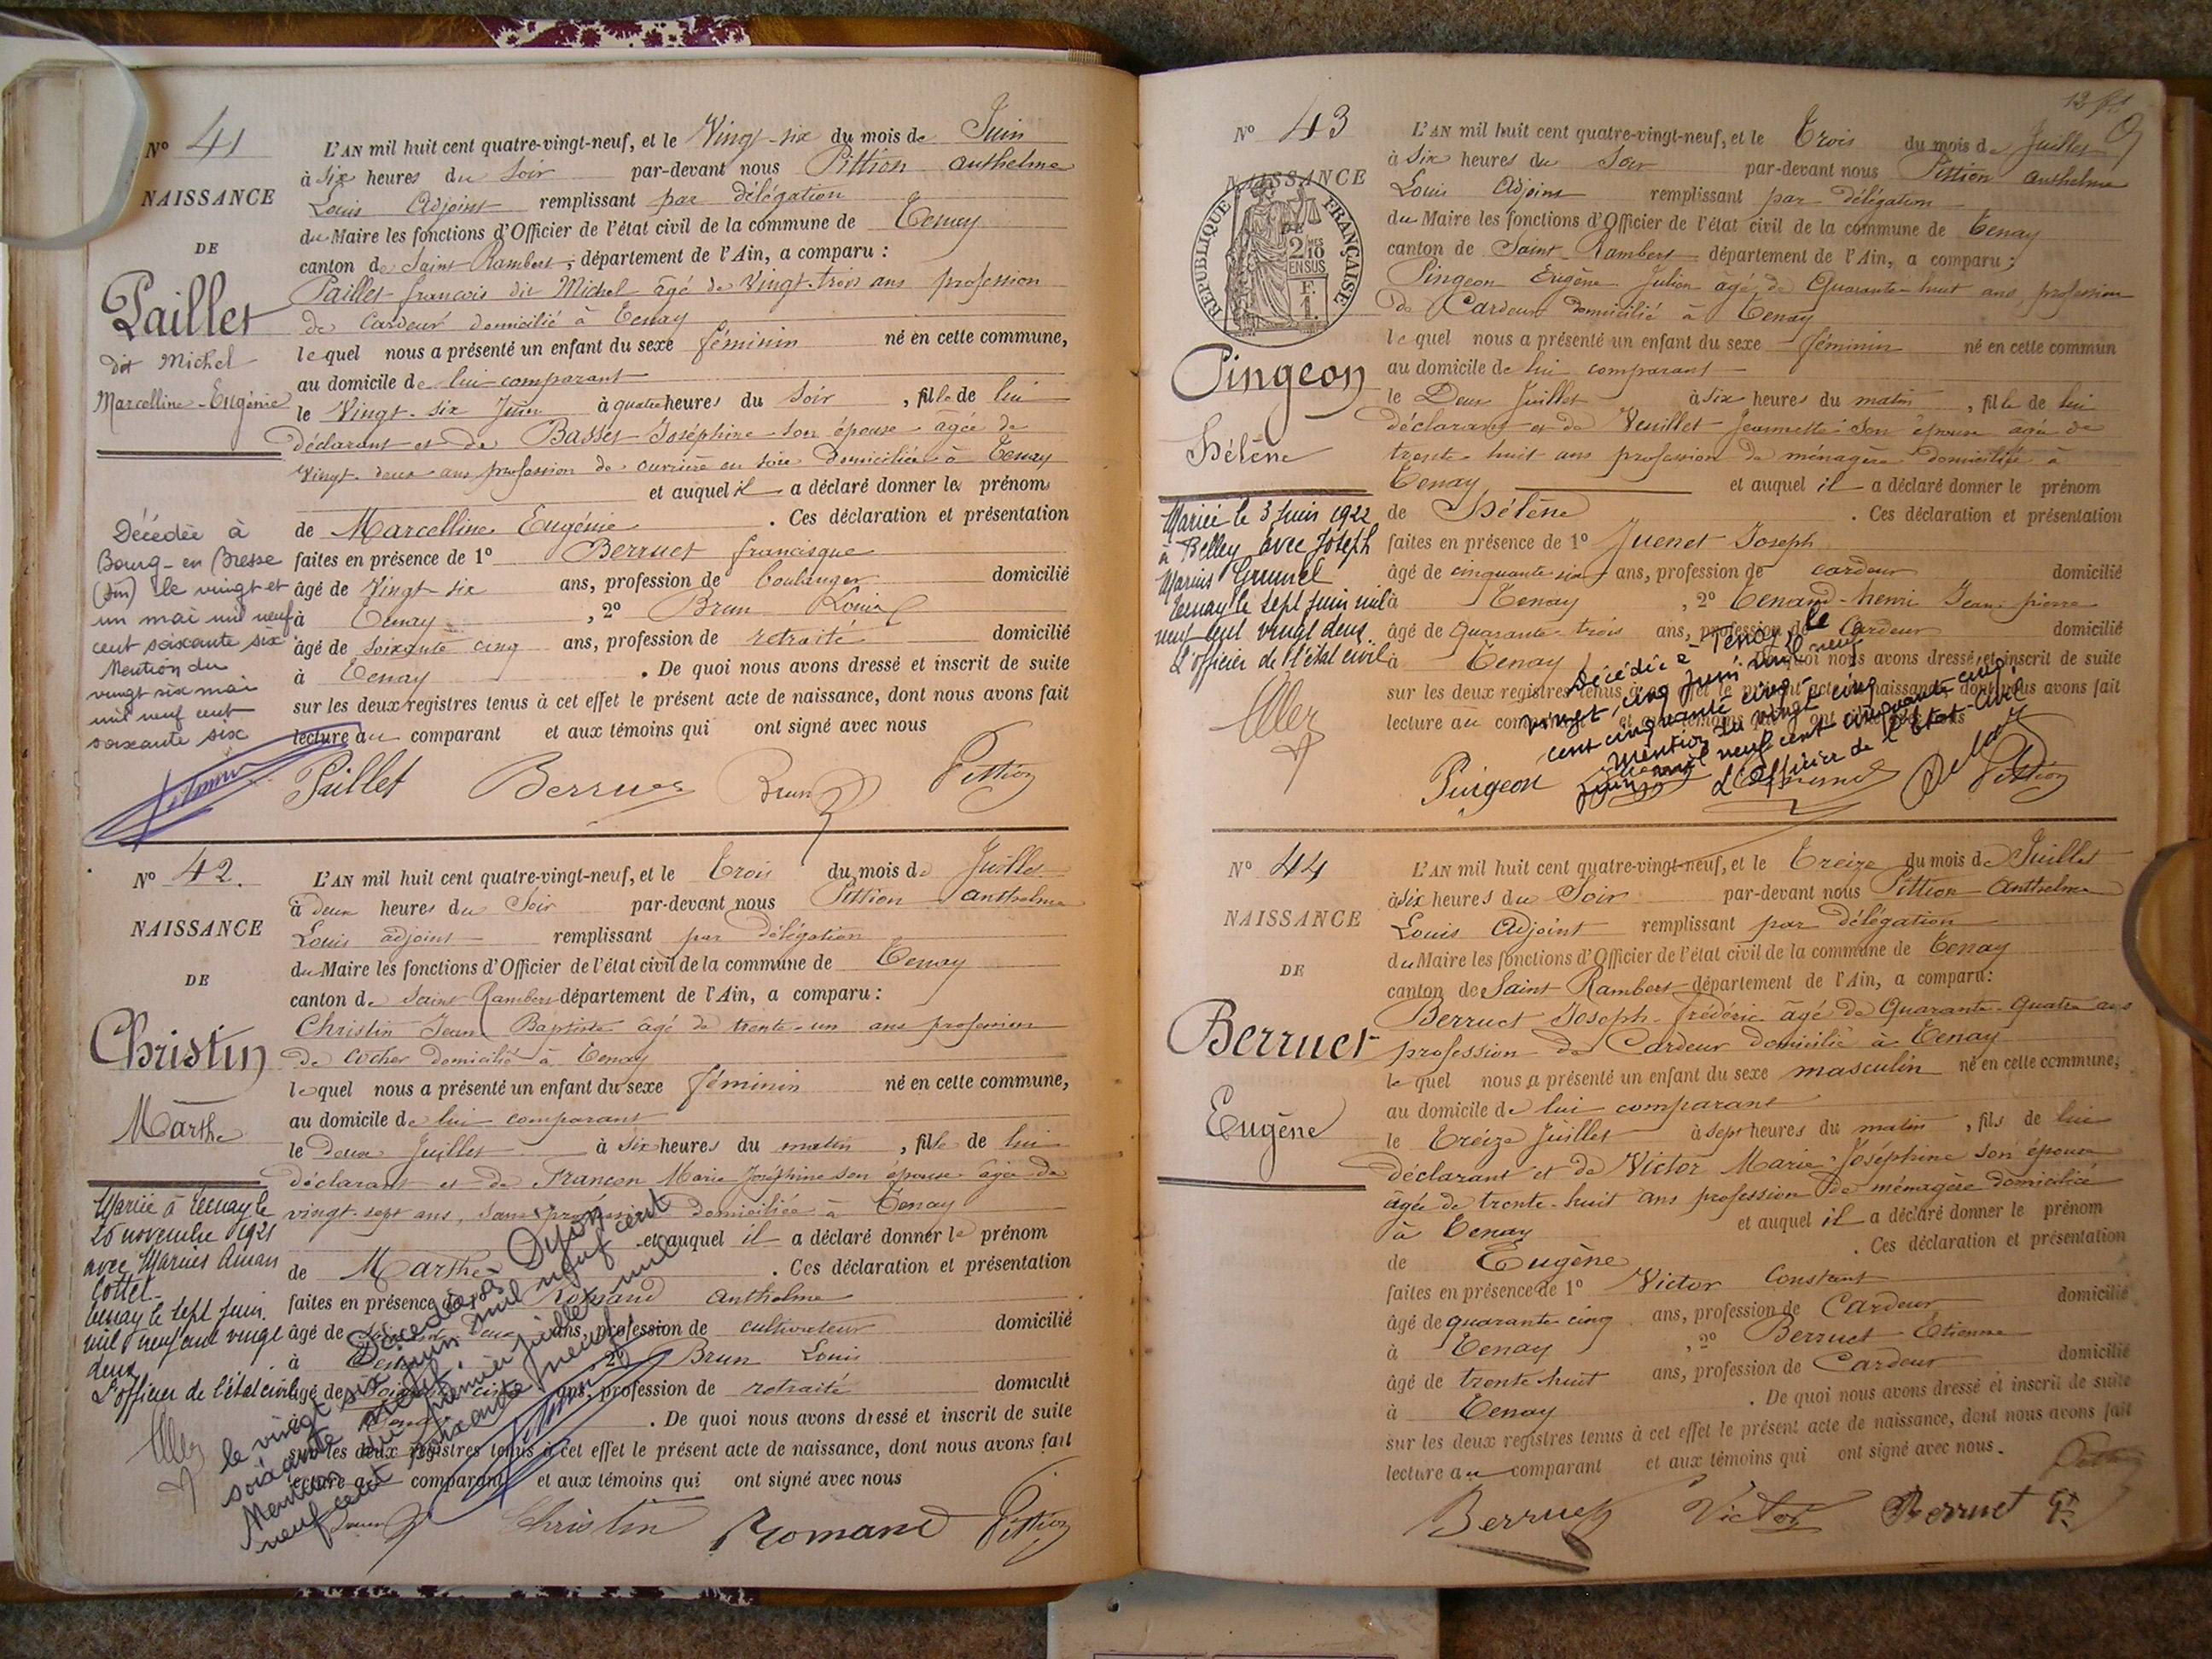 N° 41
NAISSANCE
DE
Paillet
dit Michel
Marcelline-Eugénie
Décédée à
Bourg-en Bresse
(Ain) le vingt et
un mai mil neuf
cent soixante six
Mention du
vingt six mai
mil neuf cent
soixante six
L'AN mil huit cent quatre-vingt-neuf, et le Vingt-six du mois de Juin
à six heures du Soir par-devant nous Pittion Anthelme
Louis Adjoint remplissant par délégation
du Maire les fonctions d'Officier de l'état civil de la commune de Tenay
canton de Saint Rambert, département de l'Ain, a comparu :
Paillet françois dit Michel âgé de Vingt-trois ans profession
de Cardeur domicilié à Tenay
lequel nous a présenté un enfant du sexe féminin né en cette commune,
au domicile de lui comparant
le Vingt-six Juin à quatre heures du Soir, fille de lui
déclarant et de Basset Joséphine son épouse âgée de
Vingt-deux ans profession de ouvrière en soie domiciliée à Tenay
et auquel il a déclaré donner les prénoms
de Marcelline Eugénie. Ces déclaration et présentation
faites en présence de 1° Berruet francisque
âgé de Vingt-six ans, profession de boulanger domicilié
à Tenay, 2° Brun Louis
âgé de soixante cinq ans, profession de retraité domicilié
à Tenay. De quoi nous avons dressé et inscrit de suite
sur les deux registres tenus à cet effet le présent acte de naissance, dont nous avons fait
lecture au comparant et aux témoins qui ont signé avec nous
Paillet Berruet Brun Pittion
N° 42.
NAISSANCE
DE
Christin
Marthe
Mariée à Tenay le
26 novembre 1921
avec Marius Aman
Cottet
Tenay le sept juin
mil neuf cent vingt
deux
L'officier de l'état civil
L'AN mil huit cent quatre-vingt-neuf, et le Trois du mois de Juillet
à deux heures du Soir par-devant nous Pittion Anthelme
Louis adjoint remplissant par délégation
du Maire les fonctions d'Officier de l'état civil de la commune de Tenay
canton de Saint Rambert département de l'Ain, a comparu :
Christin Jean Baptiste âgé de trente-un ans profession
de cocher domicilié à Tenay
lequel nous a présenté un enfant du sexe féminin né en cette commune,
au domicile de lui comparant
le deux Juillet à six heures du matin, fille de lui
déclarant et de Françon Marie Joséphine son épouse âgée de
vingt-sept ans, sans profession domiciliée à Tenay
et auquel il a déclaré donner le prénom
de Marthe. Ces déclaration et présentation
faites en présence de 1° Romand Anthelme
âgé de deux ans, profession de cultivateur domicilié
à Tenay, 2° Brun Louis
âgé de soixante cinq ans, profession de retraité domicilié
à Tenay. De quoi nous avons dressé et inscrit de suite
sur les deux registres tenus à cet effet le présent acte de naissance, dont nous avons fait
lecture au comparant et aux témoins qui ont signé avec nous
Décédée à Dijon
le vingt six juin mil neuf cent
soixante neuf.
Mention du premier juillet mil
neuf cent soixante neuf.
Christin Romand Pittion
N° 43
NAISSANCE
RÉPUBLIQUE FRANÇAISE
2/10 EN SUS
Pingeon
Hélène
Mariée le 3 juin 1922
à Belley avec Joseph
Marius Grumel
Tenay le sept juin mil
neuf cent vingt deux.
L'officier de l'état civil
L'AN mil huit cent quatre-vingt-neuf, et le Trois du mois de Juillet
à Six heures du Soir par-devant nous Pittion Anthelme
Louis Adjoint remplissant par délégation
du Maire les fonctions d'Officier de l'état civil de la commune de Tenay
canton de Saint Rambert département de l'Ain, a comparu :
Pingeon Eugène Julien âgé de Quarante-huit ans, profession
de Cardeur domicilié à Tenay
lequel nous a présenté un enfant du sexe féminin né en cette commun
au domicile de lui comparant
le Deux Juillet à six heures du matin, fille de lui
déclarant et de Veuillet Jeannette son épouse âgée de
trente-huit ans profession de ménagère domiciliée à
Tenay et auquel il a déclaré donner le prénom
de Hélène. Ces déclaration et présentation
faites en présence de 1° Juenet Joseph
âgé de cinquante six ans, profession de cardeur domicilié
à Tenay, 2° Tenand-henri Jean pierre
âgé de Quarante-trois ans, profession de Cardeur domicilié
à Tenay. De quoi nous avons dressé et inscrit de suite
sur les deux registres tenus à cet effet le présent acte de naissance, dont nous avons fait
lecture au comparant et aux témoins qui ont signé avec nous
Décédée à Tenay le
vingt cinq juin mil neuf
cent cinquante cinq -
Mention du vingt cinq
juin mil neuf cent cinquante cinq.
L'Officier de l'Etat-Civil
Pingeon Pittion
N° 44
NAISSANCE
DE
Berruet
Eugène
L'AN mil huit cent quatre-vingt-neuf, et le Treize du mois de Juillet
à six heures du Soir par-devant nous Pittion Anthelme
Louis Adjoint remplissant par délégation
du Maire les fonctions d'Officier de l'état civil de la commune de Tenay
canton de Saint Rambert département de l'Ain, a comparu:
Berruet Joseph-frédéric âgé de Quarante-quatre ans
profession de Cardeur domicilié à Tenay
lequel nous a présenté un enfant du sexe masculin né en cette commune,
au domicile de lui comparant
le Treize Juillet à sept heures du matin, fils de lui
déclarant et de Victor Marie-Joséphine son épouse
âgée de trente-huit ans profession de ménagère domiciliée
à Tenay et auquel il a déclaré donner le prénom
de Eugène. Ces déclaration et présentation
faites en présence de 1° Victor Constant
âgé de quarante cinq ans, profession de Cardeur domicilié
à Tenay, 2° Berruet Etienne
âgé de trente huit ans, profession de Cardeur domicilié
à Tenay. De quoi nous avons dressé et inscrit de suite
sur les deux registres tenus à cet effet le présent acte de naissance, dont nous avons fait
lecture au comparant et aux témoins qui ont signé avec nous.
Berruet Victor Berruet Pittion